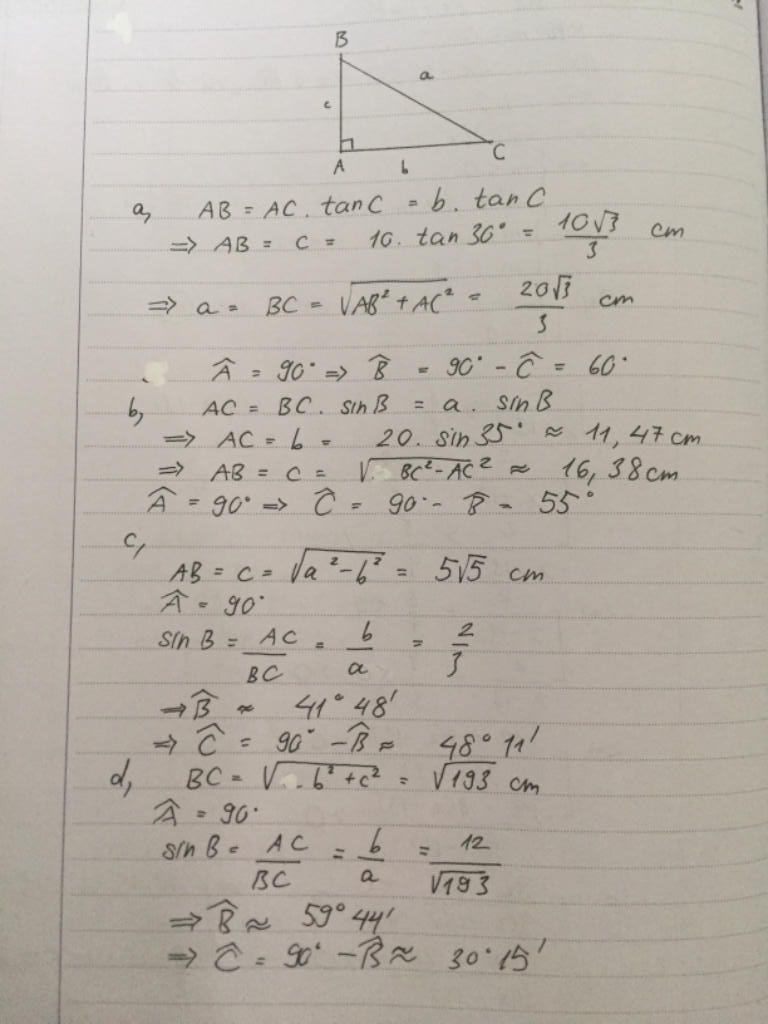 B
a
c
A
b
C
a, AB = AC . tanC = b . tanC
⇒ AB = c = 10 . tan 30° = 10√3/3 cm
⇒ a = BC = √(AB² + AC²) = 20√3/3 cm
Â = 90° ⇒ B̂ = 90° - Ĉ = 60°
b, AC = BC . sinB = a . sinB
⇒ AC = b = 20 . sin35° ≈ 11,47cm
⇒ AB = c = √(BC² - AC²) ≈ 16,38cm
Â = 90° ⇒ Ĉ = 90° - B̂ = 55°
c,
AB = c = √(a² - b²) = 5√5 cm
Â = 90°
sin B = AC/BC = b/a = 2/3
⇒ B̂ ≈ 41° 48'
⇒ Ĉ = 90° - B̂ ≈ 48° 11'
d, BC = √(b² + c²) = √193 cm
Â = 90°
sin B = AC/BC = b/a = 12/√193
⇒ B̂ ≈ 59° 44'
⇒ Ĉ = 90° - B̂ ≈ 30° 15'